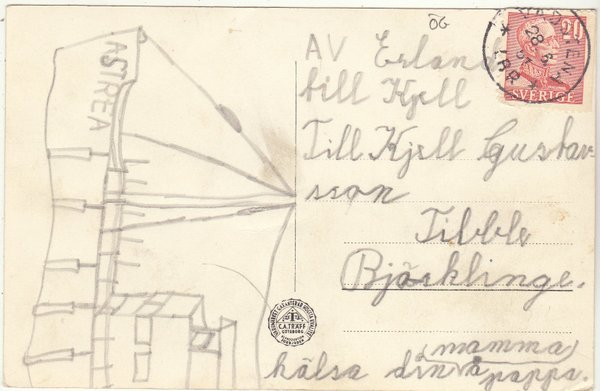 ÖG
20
SVERIGE
ASTREA
AV Erlan
till Kjell
Till Kjell Gustav-
sson
Tibble
Björklinge.
C.A. TRÄFF
GÖTEBORG
(mamma)
hälsa din pappa.